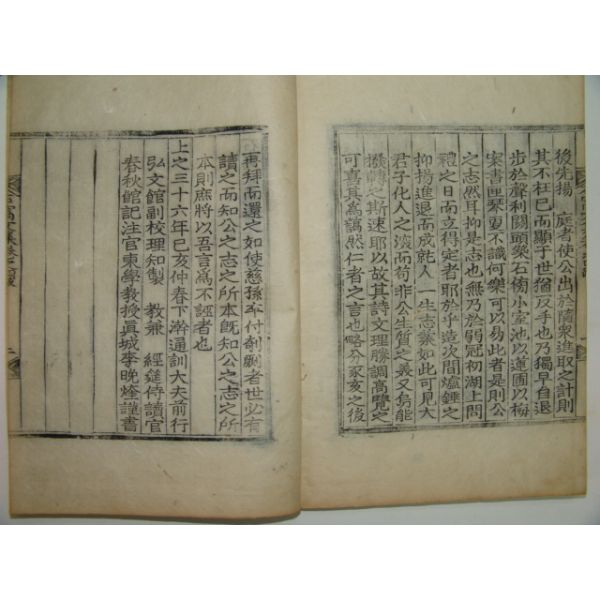 後先揚 庭者使公出於隨衆進取之計則
其不枉已而顯于世猶反手也乃獨早自退
步於聲利關頭衆石衖小室池以道圖以梅
案書匣琴更不識何樂可以易此者是則公
之志然耳抑是志也無乃於弱冠初湖上問
禮之日而立得定者耶於乎造次間爐錘之
抑揚進退而成就人一生志業如此可見大
君子化人之深而苟非公生質之美又烏能
撥轉之斯速耶以故其詩文理勝調高覽之
可喜其爲藹然仁者之言也略分豕亥之後
再拜而還之如使慈孫付剞劂者世必有
讀之而知公之志之所本旣知公之志之所
本則庶將以吾言爲不誣者也
上之三十六年己亥仲春下澣通訓大夫前行
弘文館副校理知製 敎兼 經筵侍讀官
春秋館記注官東學敎授眞城李晩煃謹書